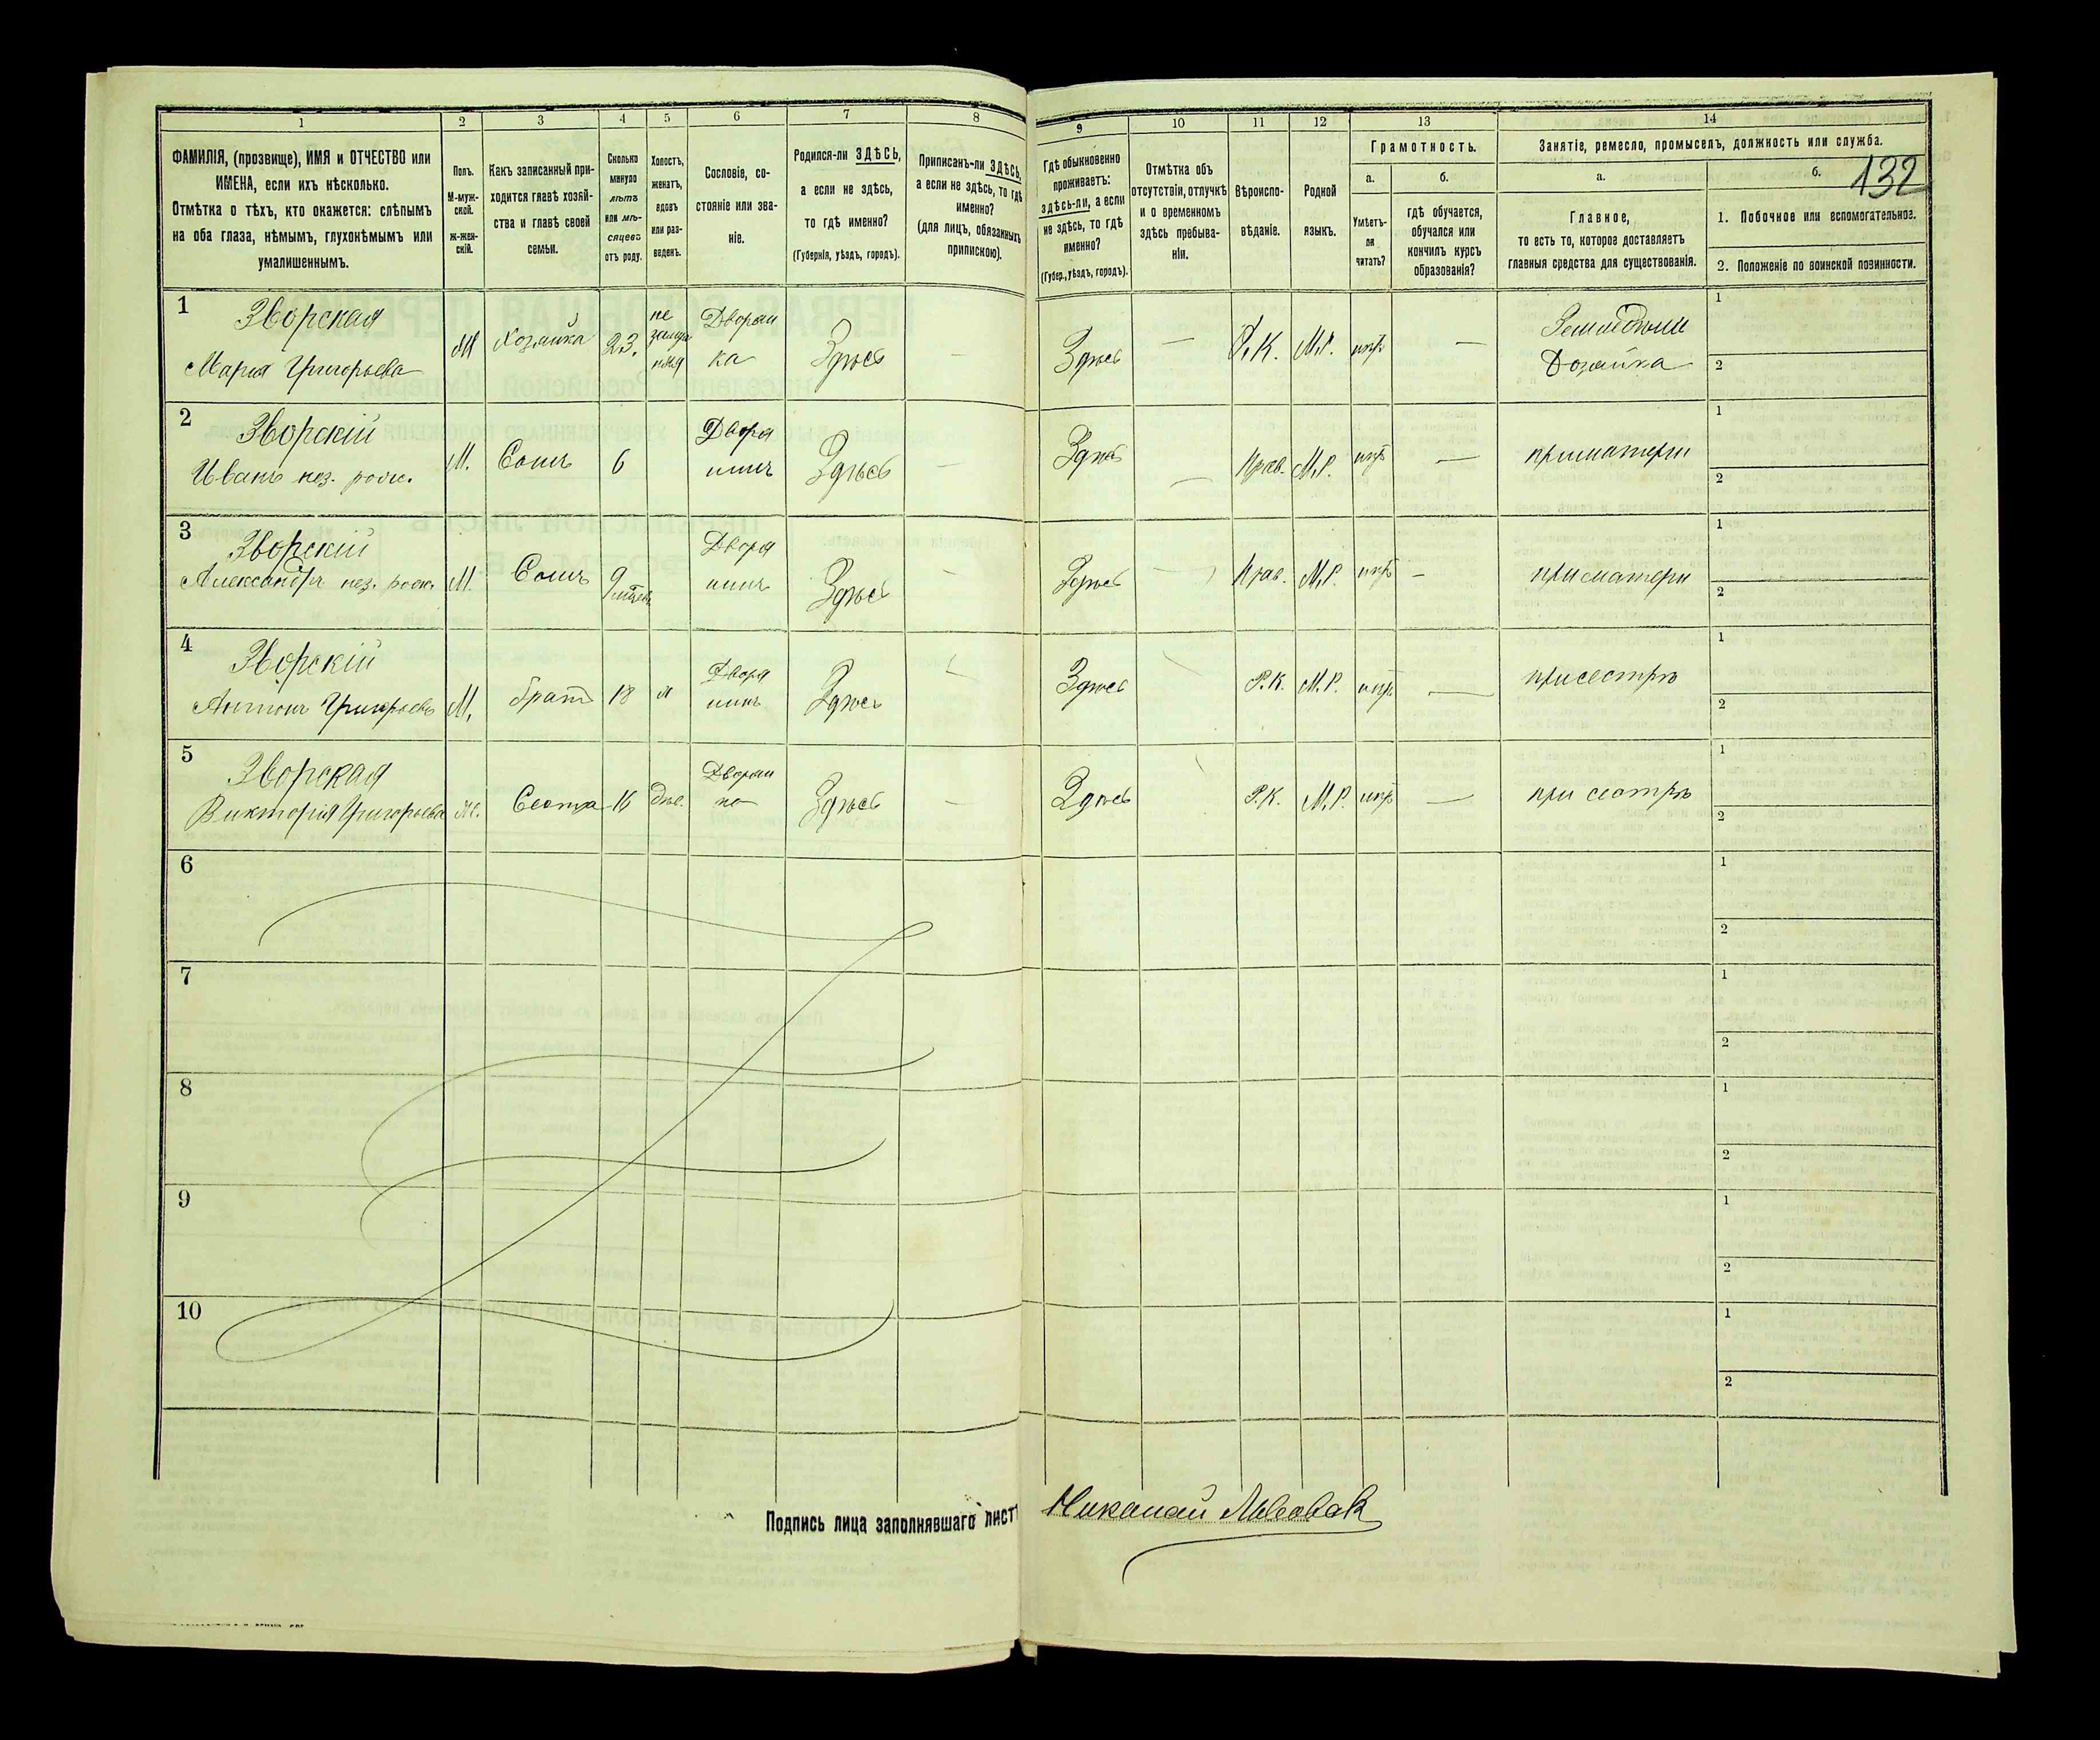 132
1 2 3 4 5 6 7 8 9 10 11 12 13 14
ФАМИЛІЯ, (прозвище), ИМЯ и ОТЧЕСТВО или
ИМЕНА, если ихъ нѣсколько.
Отмѣтка о тѣхъ, кто окажется: слѣпымъ
на оба глаза, нѣмымъ, глухонѣмымъ или
умалишеннымъ.
Полъ.
М-муж-
ской.
ж-жен-
скій.
Какъ записанный при-
ходится главѣ хозяй-
ства и главѣ своей
семьи.
Сколько
минуло
лѣтъ
или мѣ-
сяцевъ
отъ роду.
Холостъ,
женатъ,
вдовъ
или раз-
веденъ.
Сословіе, со-
стояніе или зва-
ніе.
Родился-ли ЗДѢСЬ,
а если не здѣсь,
то гдѣ именно?
(Губернія, уѣздъ, городъ).
Приписанъ-ли ЗДѢСЬ,
а если не здѣсь, то гдѣ
именно?
(для лицъ, обязанныхъ
припискою).
Гдѣ обыкновенно
проживаетъ:
здѣсь-ли, а если
не здѣсь, то гдѣ
именно?
(Губер., уѣздъ, городъ).
Отмѣтка объ
отсутствіи, отлучкѣ
и о временномъ
здѣсь пребыва-
ніи.
Вѣроиспо-
вѣданіе.
Родной
языкъ.
Грамотность.
а.
Умѣетъ-
ли
читать?
б.
гдѣ обучается,
обучался или
кончилъ курсъ
образованія?
Занятіе, ремесло, промыселъ, должность или служба.
а.
Главное,
то есть то, которое доставляетъ
главныя средства для существованія.
б.
1. Побочное или вспомогательное.
2. Положеніе по воинской повинности.
1 Зворская
Марія Григорьева
Хозяйка 23. не
замуж
няя
Дворян
ка
Здѣсь — Здѣсь — Р.К. М.Р. нѣтъ —
Хозяйка
1
2
2 Зворскій
Иванъ нез. рож.
М. Сынъ 6 Дворя
нинъ
Здѣсь — Здѣсь — Прав. М.Р. нѣтъ — при матери
1
2
3 Зворскій
Александръ нез. рож.
М. Сынъ 9 мѣсяцев. Дворя
нинъ
Здѣсь — Здѣсь — Прав. М.Р. нѣтъ — при матери
1
2
4 Зворскій
Антонъ Григорьевъ
М. братъ 18 х Дворя
нинъ
Здѣсь Здѣсь Р.К. М.Р. нѣтъ — при сестрѣ
1
2
5 Зворская
Викторія Григорьева
ж. Сестра 16 дѣв. Дворян
ка
Здѣсь — Здѣсь Р.К. М.Р. нѣтъ — при сестрѣ
1
2
6
1
2
7
1
2
8
1
2
9
1
2
10
1
2
Подпись лица заполнявшаго листъ Николай